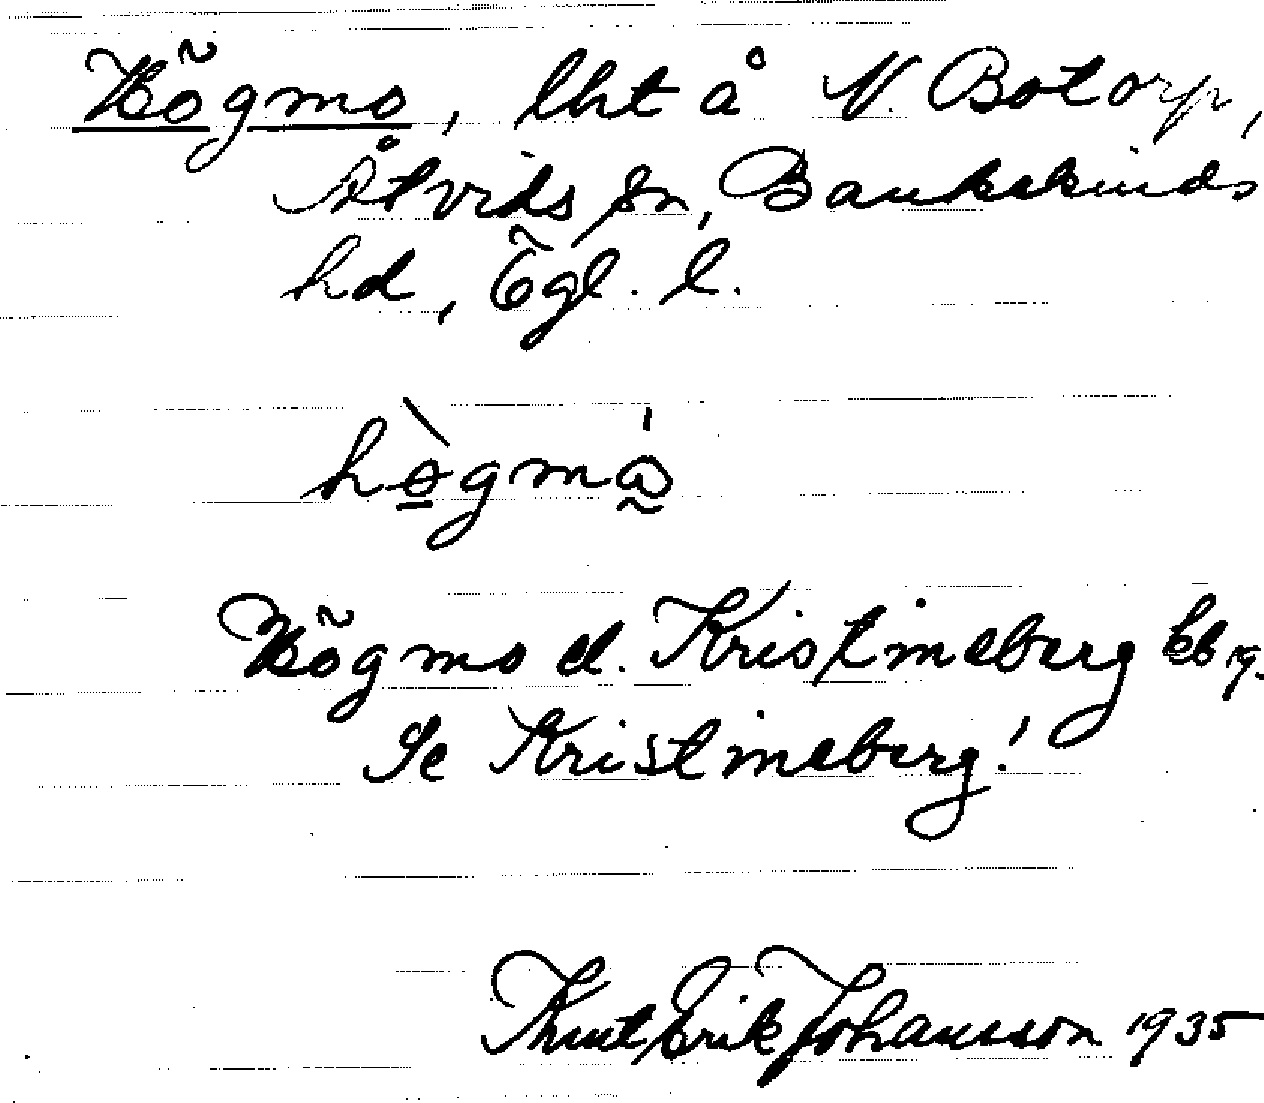 Högmo, lht å N. Botorp,
Åtvids sn, Bankekinds
hd, Ögl. l.
högmo
Högmo el. Kristineberg kb 19.
Se Kristineberg!
Knut Erik Johansson 1935